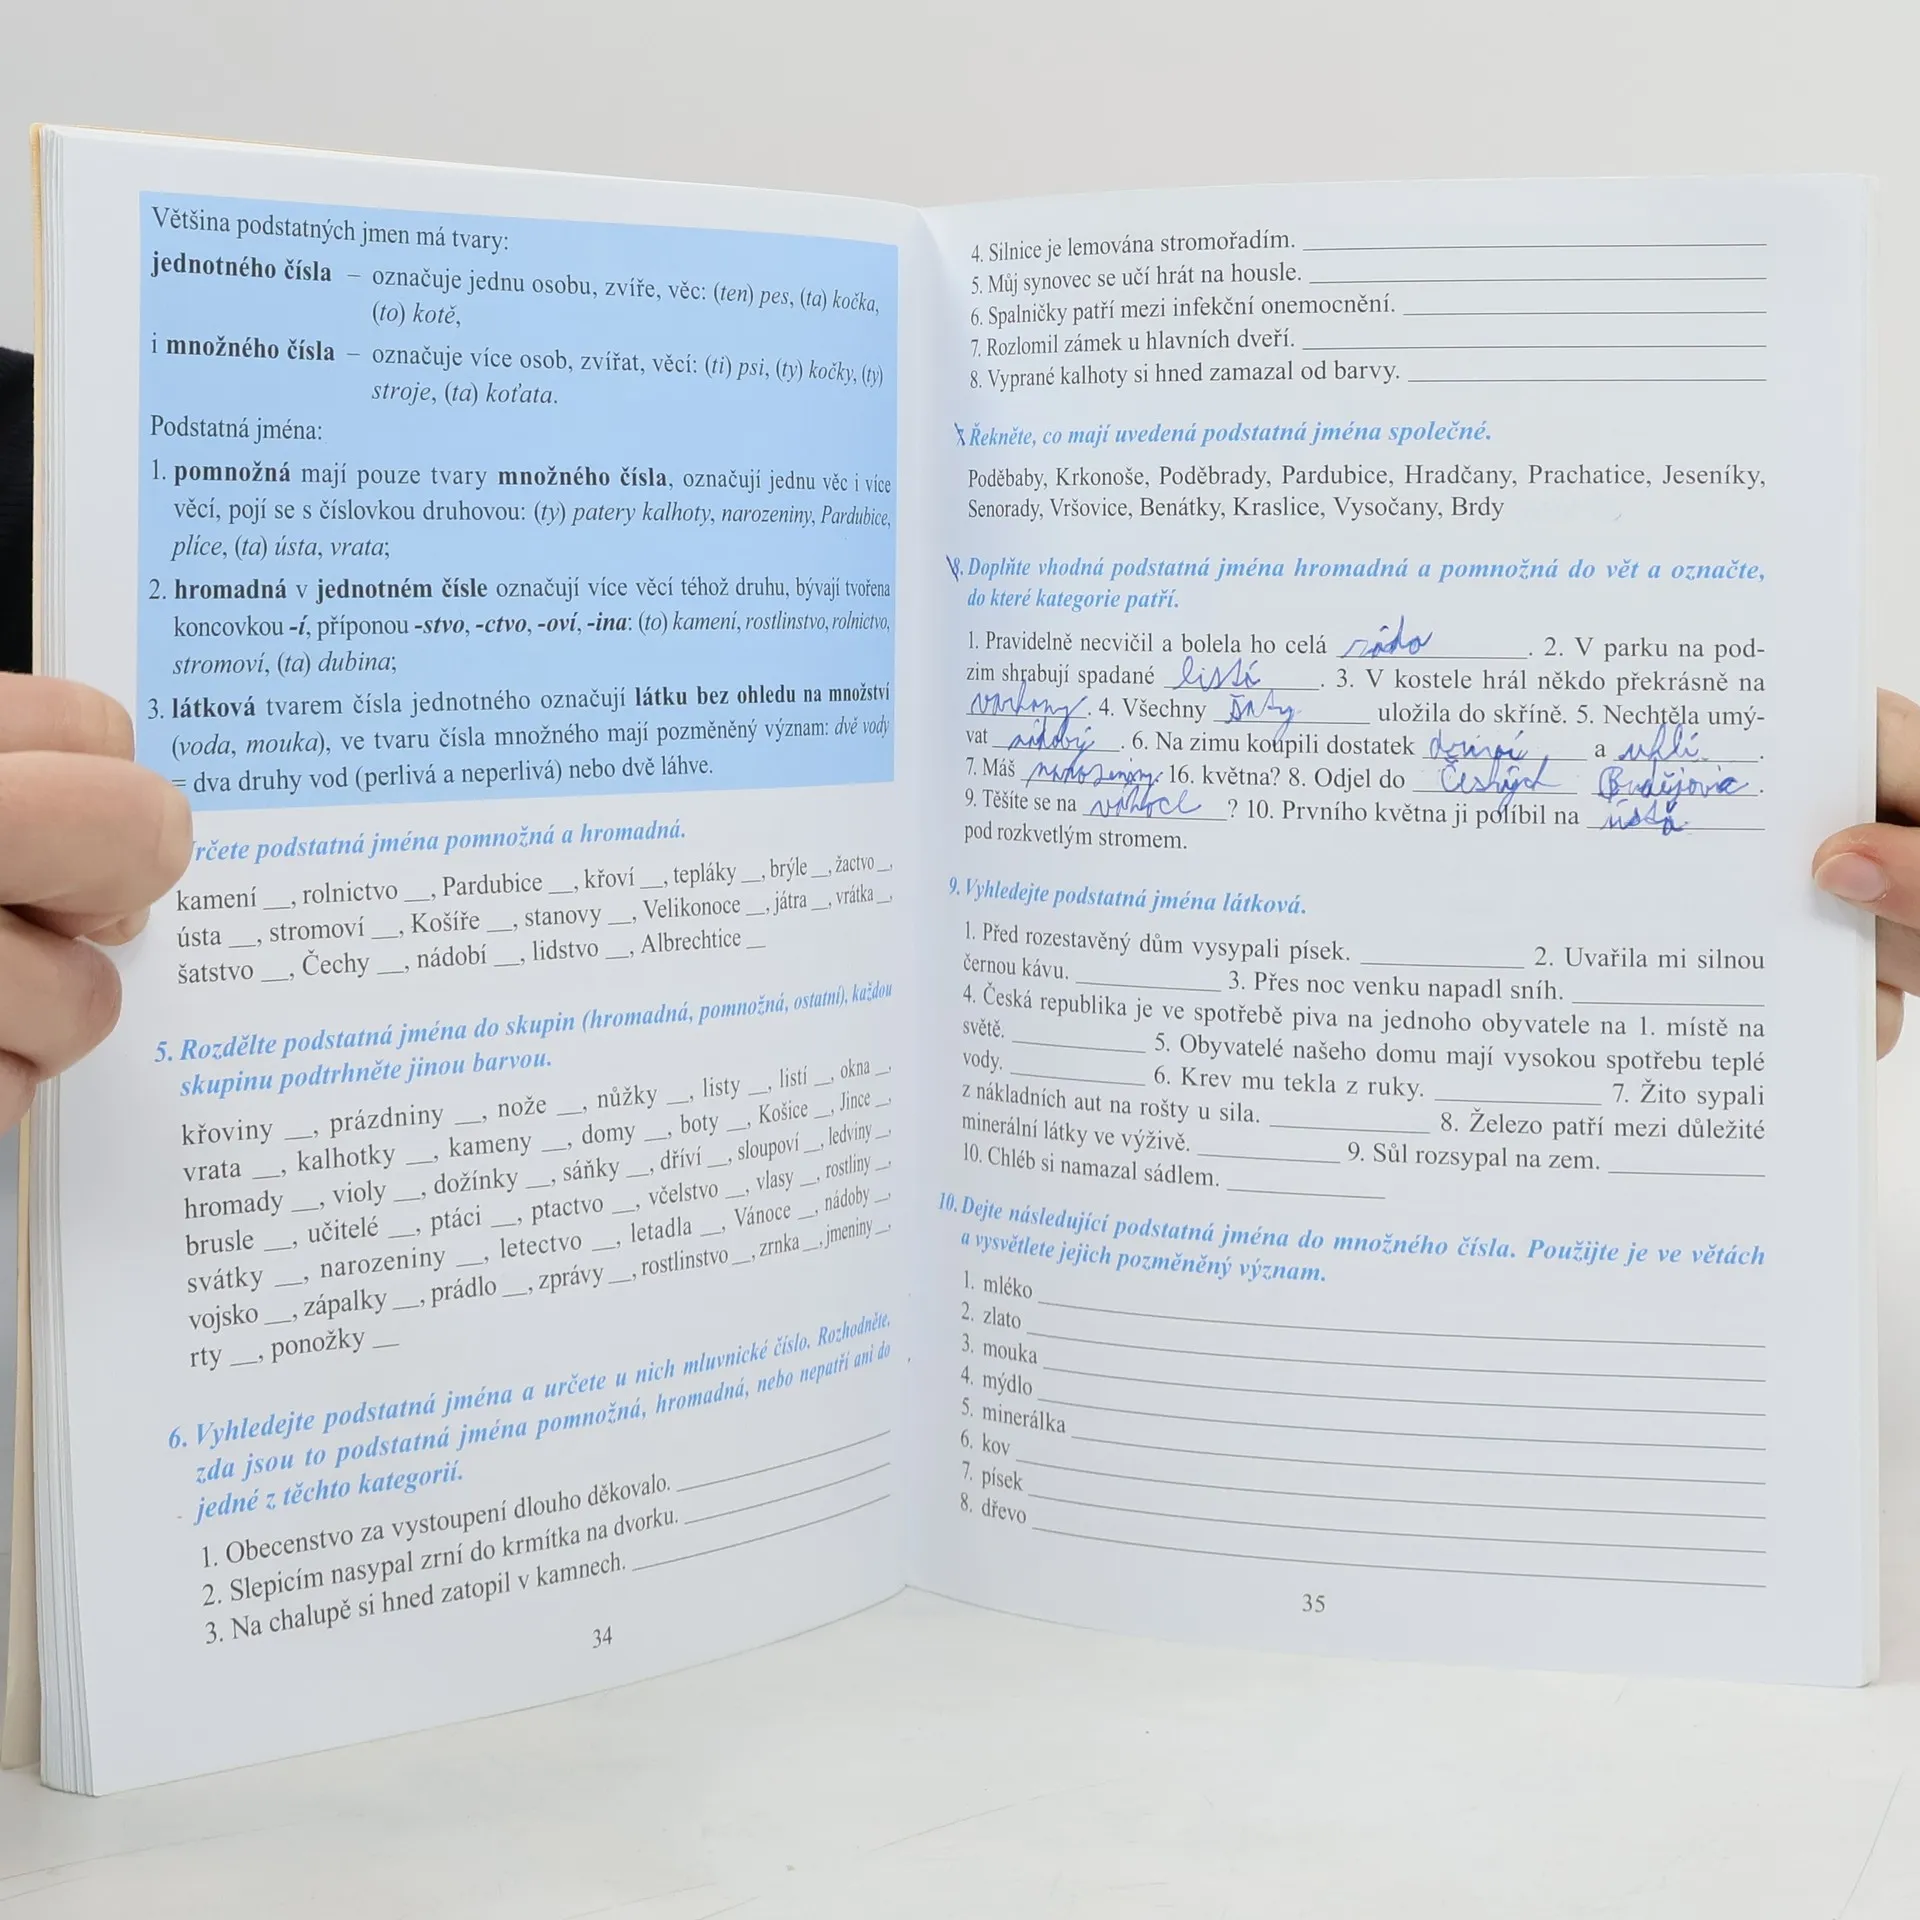 Většina podstatných jmen má tvary:
jednotného čísla – označuje jednu osobu, zvíře, věc: (ten) pes, (ta) kočka,
(to) kotě,
i množného čísla – označuje více osob, zvířat, věcí: (ti) psi, (ty) kočky, (ty)
stroje, (ta) koťata.
Podstatná jména:
1. pomnožná mají pouze tvary množného čísla, označují jednu věc i více
věcí, pojí se s číslovkou druhovou: (ty) patery kalhoty, narozeniny, Pardubice,
plíce, (ta) ústa, vrata;
2. hromadná v jednotném čísle označují více věcí téhož druhu, bývají tvořena
koncovkou -í, příponou -stvo, -ctvo, -oví, -ina: (to) kamení, rostlinstvo, rolnictvo,
stromoví, (ta) dubina;
3. látková tvarem čísla jednotného označují látku bez ohledu na množství
(voda, mouka), ve tvaru čísla množného mají pozměněný význam: dvě vody
= dva druhy vod (perlivá a neperlivá) nebo dvě láhve.
rčete podstatná jména pomnožná a hromadná.
kamení __, rolnictvo __, Pardubice __, křoví __, tepláky __, brýle __, žactvo __,
ústa __, stromoví __, Košíře __, stanovy __, Velikonoce __, játra __, vrátka __,
šatstvo __, Čechy __, nádobí __, lidstvo __, Albrechtice __
5. Rozdělte podstatná jména do skupin (hromadná, pomnožná, ostatní), každou
skupinu podtrhněte jinou barvou.
křoviny __, prázdniny __, nože __, nůžky __, listy __, listí __, okna __,
vrata __, kalhotky __, kameny __, domy __, boty __, Košice __, Jince __,
hromady __, violy __, dožínky __, sáňky __, dříví __, sloupoví __, ledviny __,
brusle __, učitelé __, ptáci __, ptactvo __, včelstvo __, vlasy __, rostliny __,
svátky __, narozeniny __, letectvo __, letadla __, Vánoce __, nádoby __,
vojsko __, zápalky __, prádlo __, zprávy __, rostlinstvo __, zrnka __, jmeniny __,
rty __, ponožky __
6. Vyhledejte podstatná jména a určete u nich mluvnické číslo. Rozhodněte,
zda jsou to podstatná jména pomnožná, hromadná, nebo nepatří ani do
jedné z těchto kategorií.
1. Obecenstvo za vystoupení dlouho děkovalo. ____
2. Slepicím nasypal zrní do krmítka na dvorku. ____
3. Na chalupě si hned zatopil v kamnech. ____
34
4. Silnice je lemována stromořadím. ____
5. Můj synovec se učí hrát na housle. ____
6. Spalničky patří mezi infekční onemocnění. ____
7. Rozlomil zámek u hlavních dveří. ____
8. Vyprané kalhoty si hned zamazal od barvy. ____
7. Řekněte, co mají uvedená podstatná jména společné.
Poděbaby, Krkonoše, Poděbrady, Pardubice, Hradčany, Prachatice, Jeseníky,
Senorady, Vršovice, Benátky, Kraslice, Vysočany, Brdy
8. Doplňte vhodná podstatná jména hromadná a pomnožná do vět a označte,
do které kategorie patří.
1. Pravidelně necvičil a bolela ho celá záda. 2. V parku na pod-
zim shrabují spadané listí. 3. V kostele hrál někdo překrásně na
varhany. 4. Všechny šaty uložila do skříně. 5. Nechtěla umý-
vat nádobý. 6. Na zimu koupili dostatek a uhlí.
7. Máš narozeniny 16. května? 8. Odjel do Českých Budějovic.
9. Těšíte se na vánoce? 10. Prvního května ji políbil na ústa
pod rozkvetlým stromem.
9. Vyhledejte podstatná jména látková.
1. Před rozestavěný dům vysypali písek. ____ 2. Uvařila mi silnou
černou kávu. ____ 3. Přes noc venku napadl sníh. ____
4. Česká republika je ve spotřebě piva na jednoho obyvatele na 1. místě na
světě. ____ 5. Obyvatelé našeho domu mají vysokou spotřebu teplé
vody. ____ 6. Krev mu tekla z ruky. ____ 7. Žito sypali
z nákladních aut na rošty u sila. ____ 8. Železo patří mezi důležité
minerální látky ve výživě. ____ 9. Sůl rozsypal na zem. ____
10. Chléb si namazal sádlem. ____
10. Dejte následující podstatná jména do množného čísla. Použijte je ve větách
a vysvětlete jejich pozměněný význam.
1. mléko ____
2. zlato ____
3. mouka ____
4. mýdlo ____
5. minerálka ____
6. kov ____
7. písek ____
8. dřevo ____
35